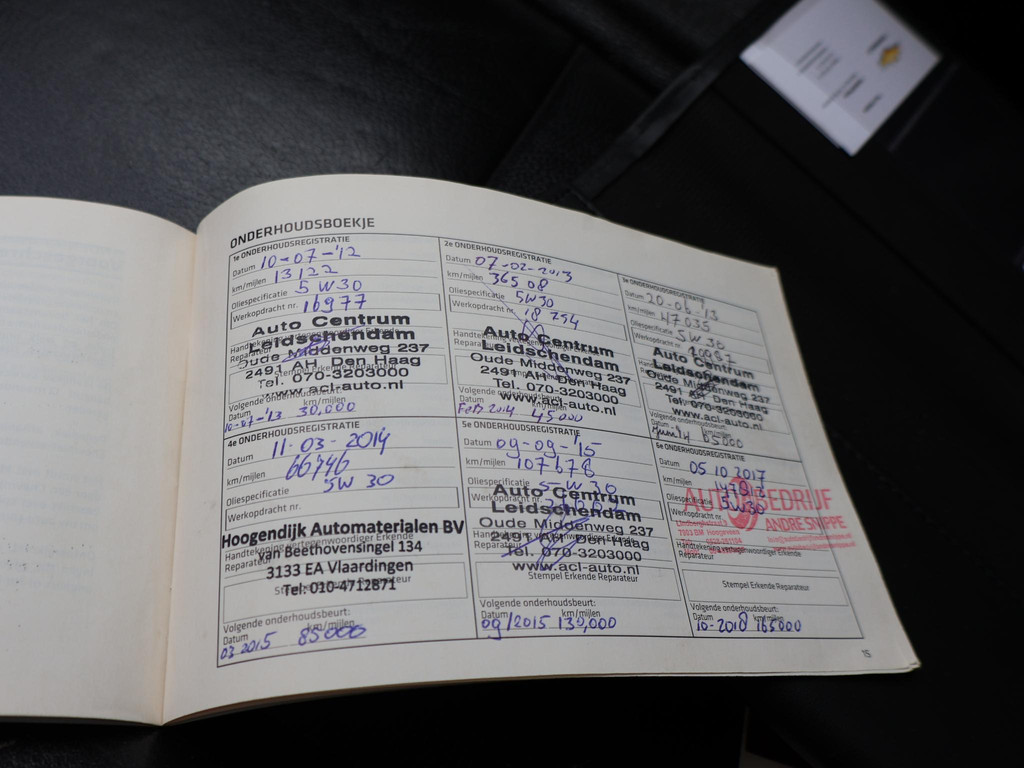 ONDERHOUDSBOEKJE
1e ONDERHOUDSREGISTRATIE
Datum 10-07-'12
km/mijlen 13122
Oliespecificatie 5W30
Werkopdracht nr. 16977
Auto Centrum
Leidschendam
Oude Middenweg 237
2491 AH Den Haag
Tel. 070-3203000
www.acl-auto.nl
Volgende onderhoudsbeurt:
Datum km/mijlen
10-07-'13 30,000
2e ONDERHOUDSREGISTRATIE
Datum 07-02-2013
km/mijlen 36508
Oliespecificatie 5W30
Werkopdracht nr. 18754
Auto Centrum
Leidschendam
Oude Middenweg 237
2491 AH Den Haag
Tel. 070-3203000
www.acl-auto.nl
Feb 2014 45000
3e ONDERHOUDSREGISTRATIE
Datum 20-06-'13
km/mijlen 47035
Oliespecificatie 5W30
Werkopdracht nr.
Auto Centrum
Leidschendam
Oude Middenweg 237
2491 AH Den Haag
Tel. 070-3203000
www.acl-auto.nl
Volgende onderhoudsbeurt:
Datum km/mijlen
4e ONDERHOUDSREGISTRATIE
Datum 11-03-2014
km/mijlen 66746
Oliespecificatie 5W30
Werkopdracht nr.
Hoogendijk Automaterialen BV
Handtekening vertegenwoordiger Erkende
Reparateur
van Beethovensingel 134
3133 EA Vlaardingen
Tel: 010-4712871
Volgende onderhoudsbeurt:
Datum km/mijlen
03 2015 85000
5e ONDERHOUDSREGISTRATIE
Datum 09-09-'15
km/mijlen 107678
Oliespecificatie 5-W30
Werkopdracht nr.
Auto Centrum
Leidschendam
Oude Middenweg 237
2491 AH Den Haag
Tel. 070-3203000
www.acl-auto.nl
Stempel Erkende Reparateur
Volgende onderhoudsbeurt:
Datum km/mijlen
09/2015 130,000
6e ONDERHOUDSREGISTRATIE
Datum 05 10 2017
km/mijlen
Oliespecificatie 5W30
Werkopdracht nr.
AUTOBEDRIJF
ANDRE SNIPPE
Handtekening vertegenwoordiger Erkende
Reparateur
Stempel Erkende Reparateur
Volgende onderhoudsbeurt:
Datum km/mijlen
10-2018 165000
15